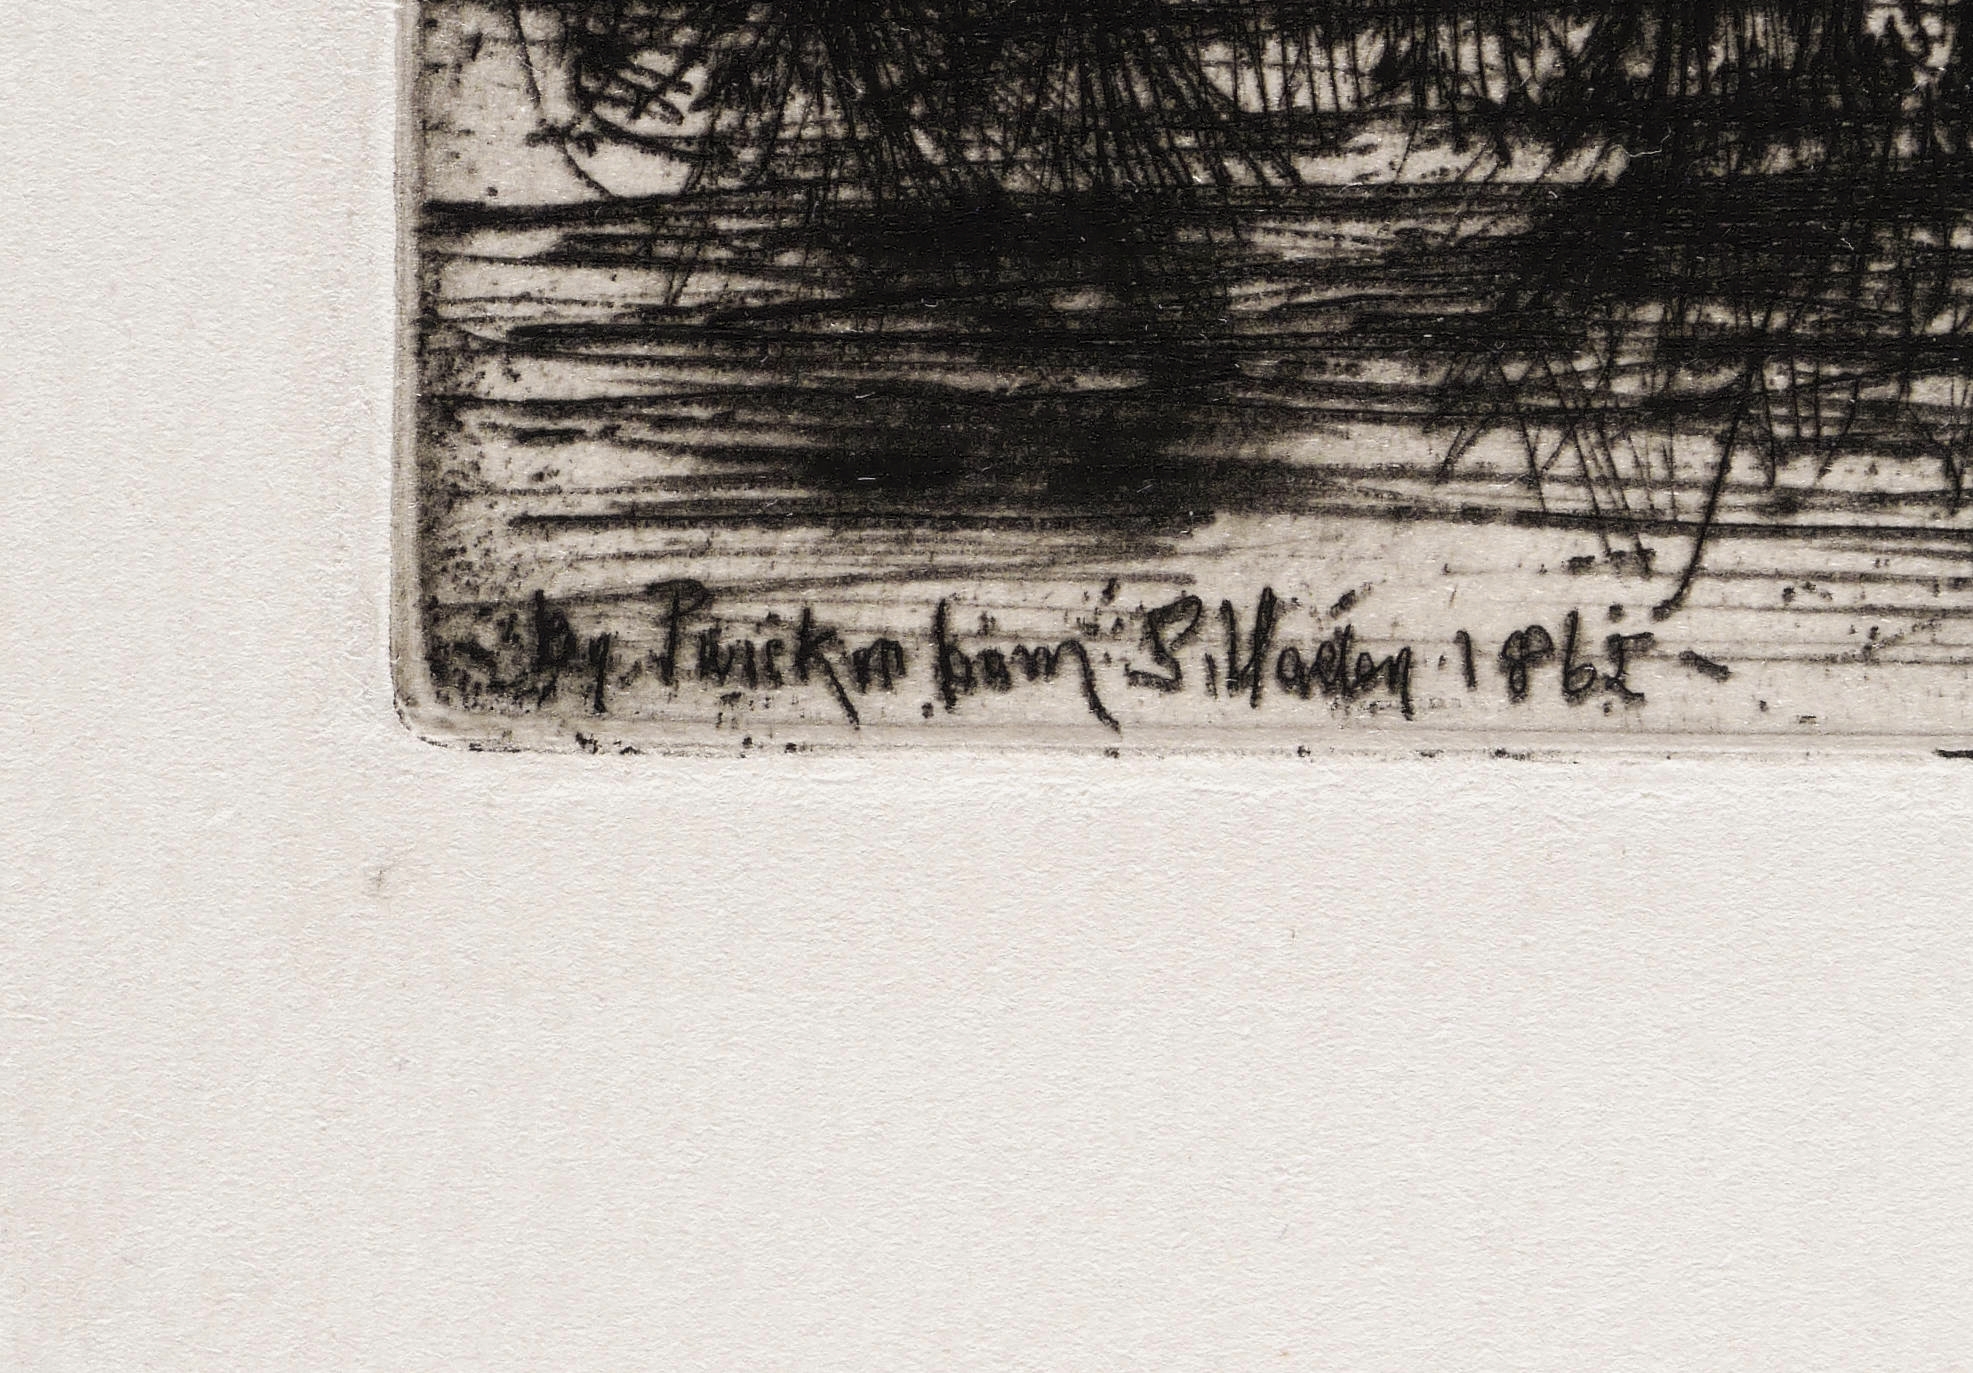 By Twickenham S. Haden 1865